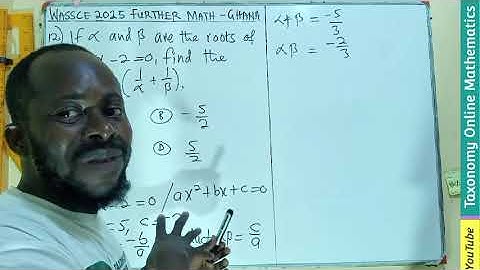 WASSCE 2025 FURTHER MATH - GHANA
12) If α and β are the roots of
-2=0, find the
(1/α + 1/β),
B -5/2
D 5/2
=0 / ax²+bx+c=0
= 5, c=-2
-b/a β = c/a
α+β = -5/3
αβ = -2/3
Taxonomy Online Mathematics
YouTube